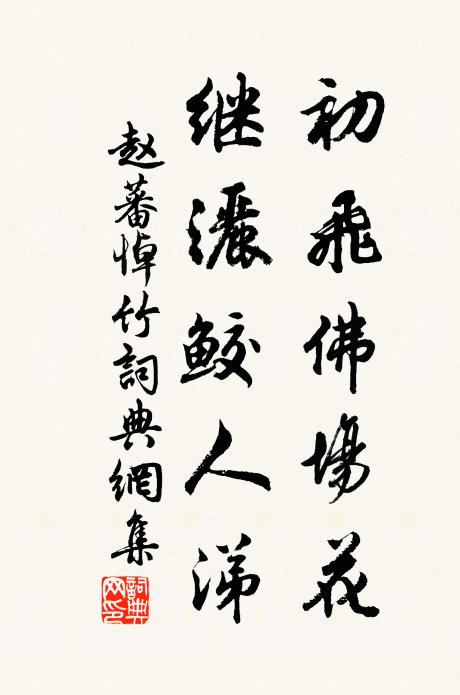 初飛佛場花
继灑鲛人涕
赵蕃悼竹詞典網集
詞典網印